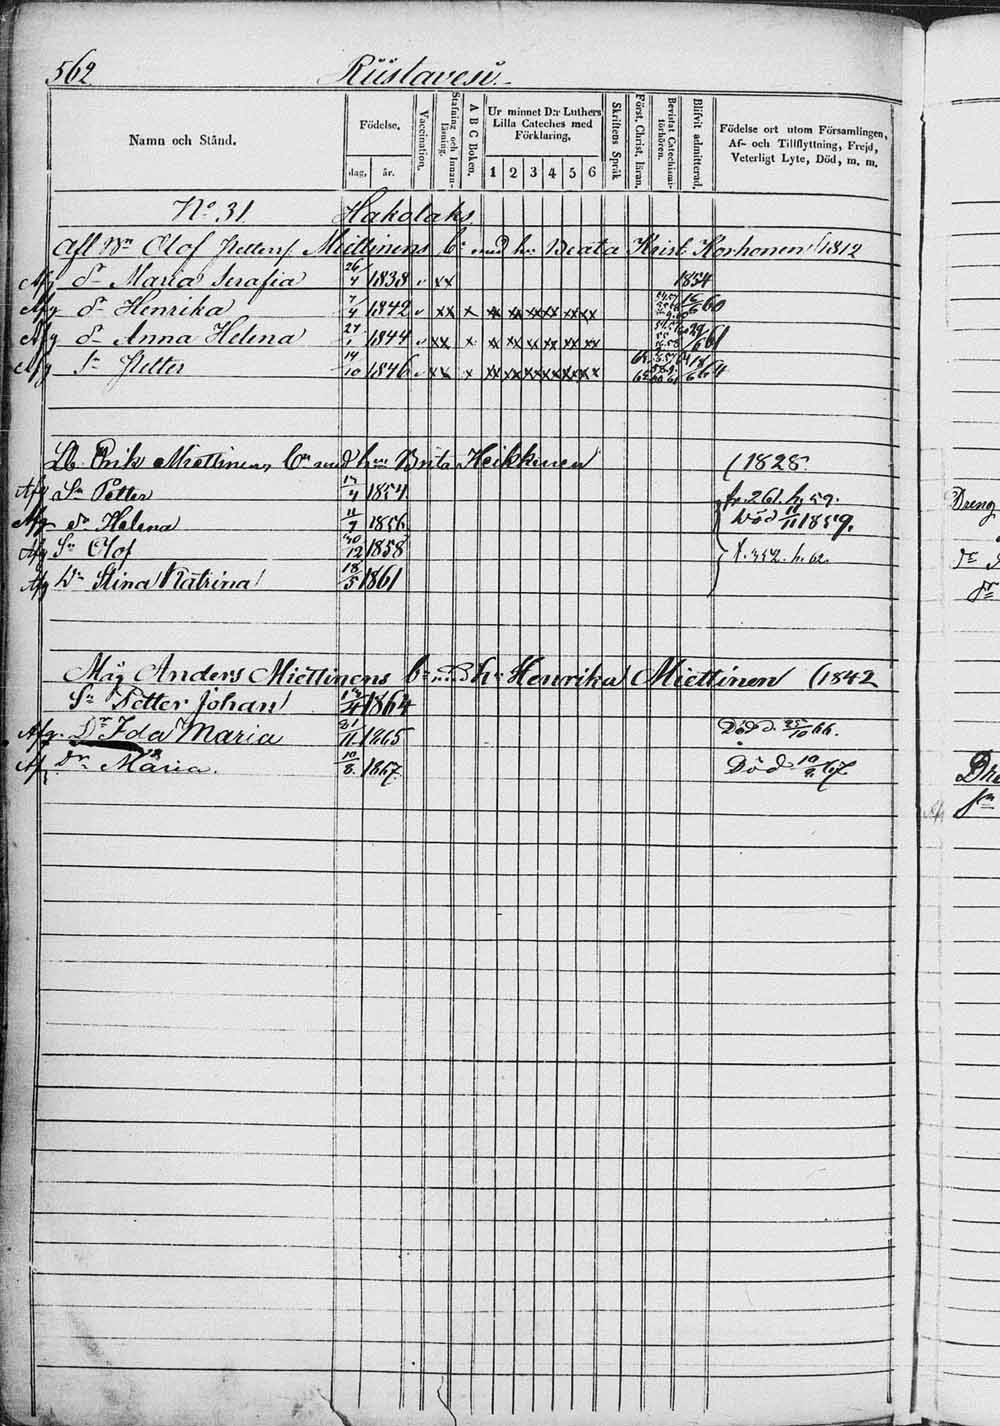 562 Rüstavesi.
Namn och Stånd.
Födelse,
dag, år.
Vaccination.
Stafning och Innan-läsning.
A B C Boken.
Ur minnet D:r Luthers
Lilla Cateches med
Förklaring,
1 2 3 4 5 6
Skriftens Språk
Först. Christ. läran.
Bevistat Catechismi-förhören.
Blifvit admitterad.
Födelse ort utom Församlingen,
Af- och Tillflyttning, Frejd,
Veterligt Lyte, Död, m. m.
No 31. Hakolaks
Afl Olof Petters Miettinens med Beata Krist. Korhonen (1812
Afg dr Maria Serafia 26/4 1838 v xx 1854
Afg dr Henrika 7/4 1842 v xx x xx xx xx xx xx xx 60
Afg dr Anna Helena 27/1 1844 v xx x xx xx xx xx xx xx 61
Afg Sn Petter 14/10 1846 v xx x xx xx xx xx xx xx 64
Lb. Erik Miettinen med Brita Heikkinen (1828.
Afg Sn Petter 1854 fr. 261. h. 59.
Afg dr Helena 11/7 1856 Död 11/11 1859.
Afg Sn Olof 30/12 1858 f. 352. h. 62.
Afg Dr Stina Katrina 18/5 1861
Måg Anders Miettinens Henrika Miettinen (1842
Sn Petter Johan 1864
Afg. Dr Ida Maria 21/11 1865 Död d. 25/10 66.
Af Dr Maria. 10/8. 1867. Död 10/9. 67.
Dreng